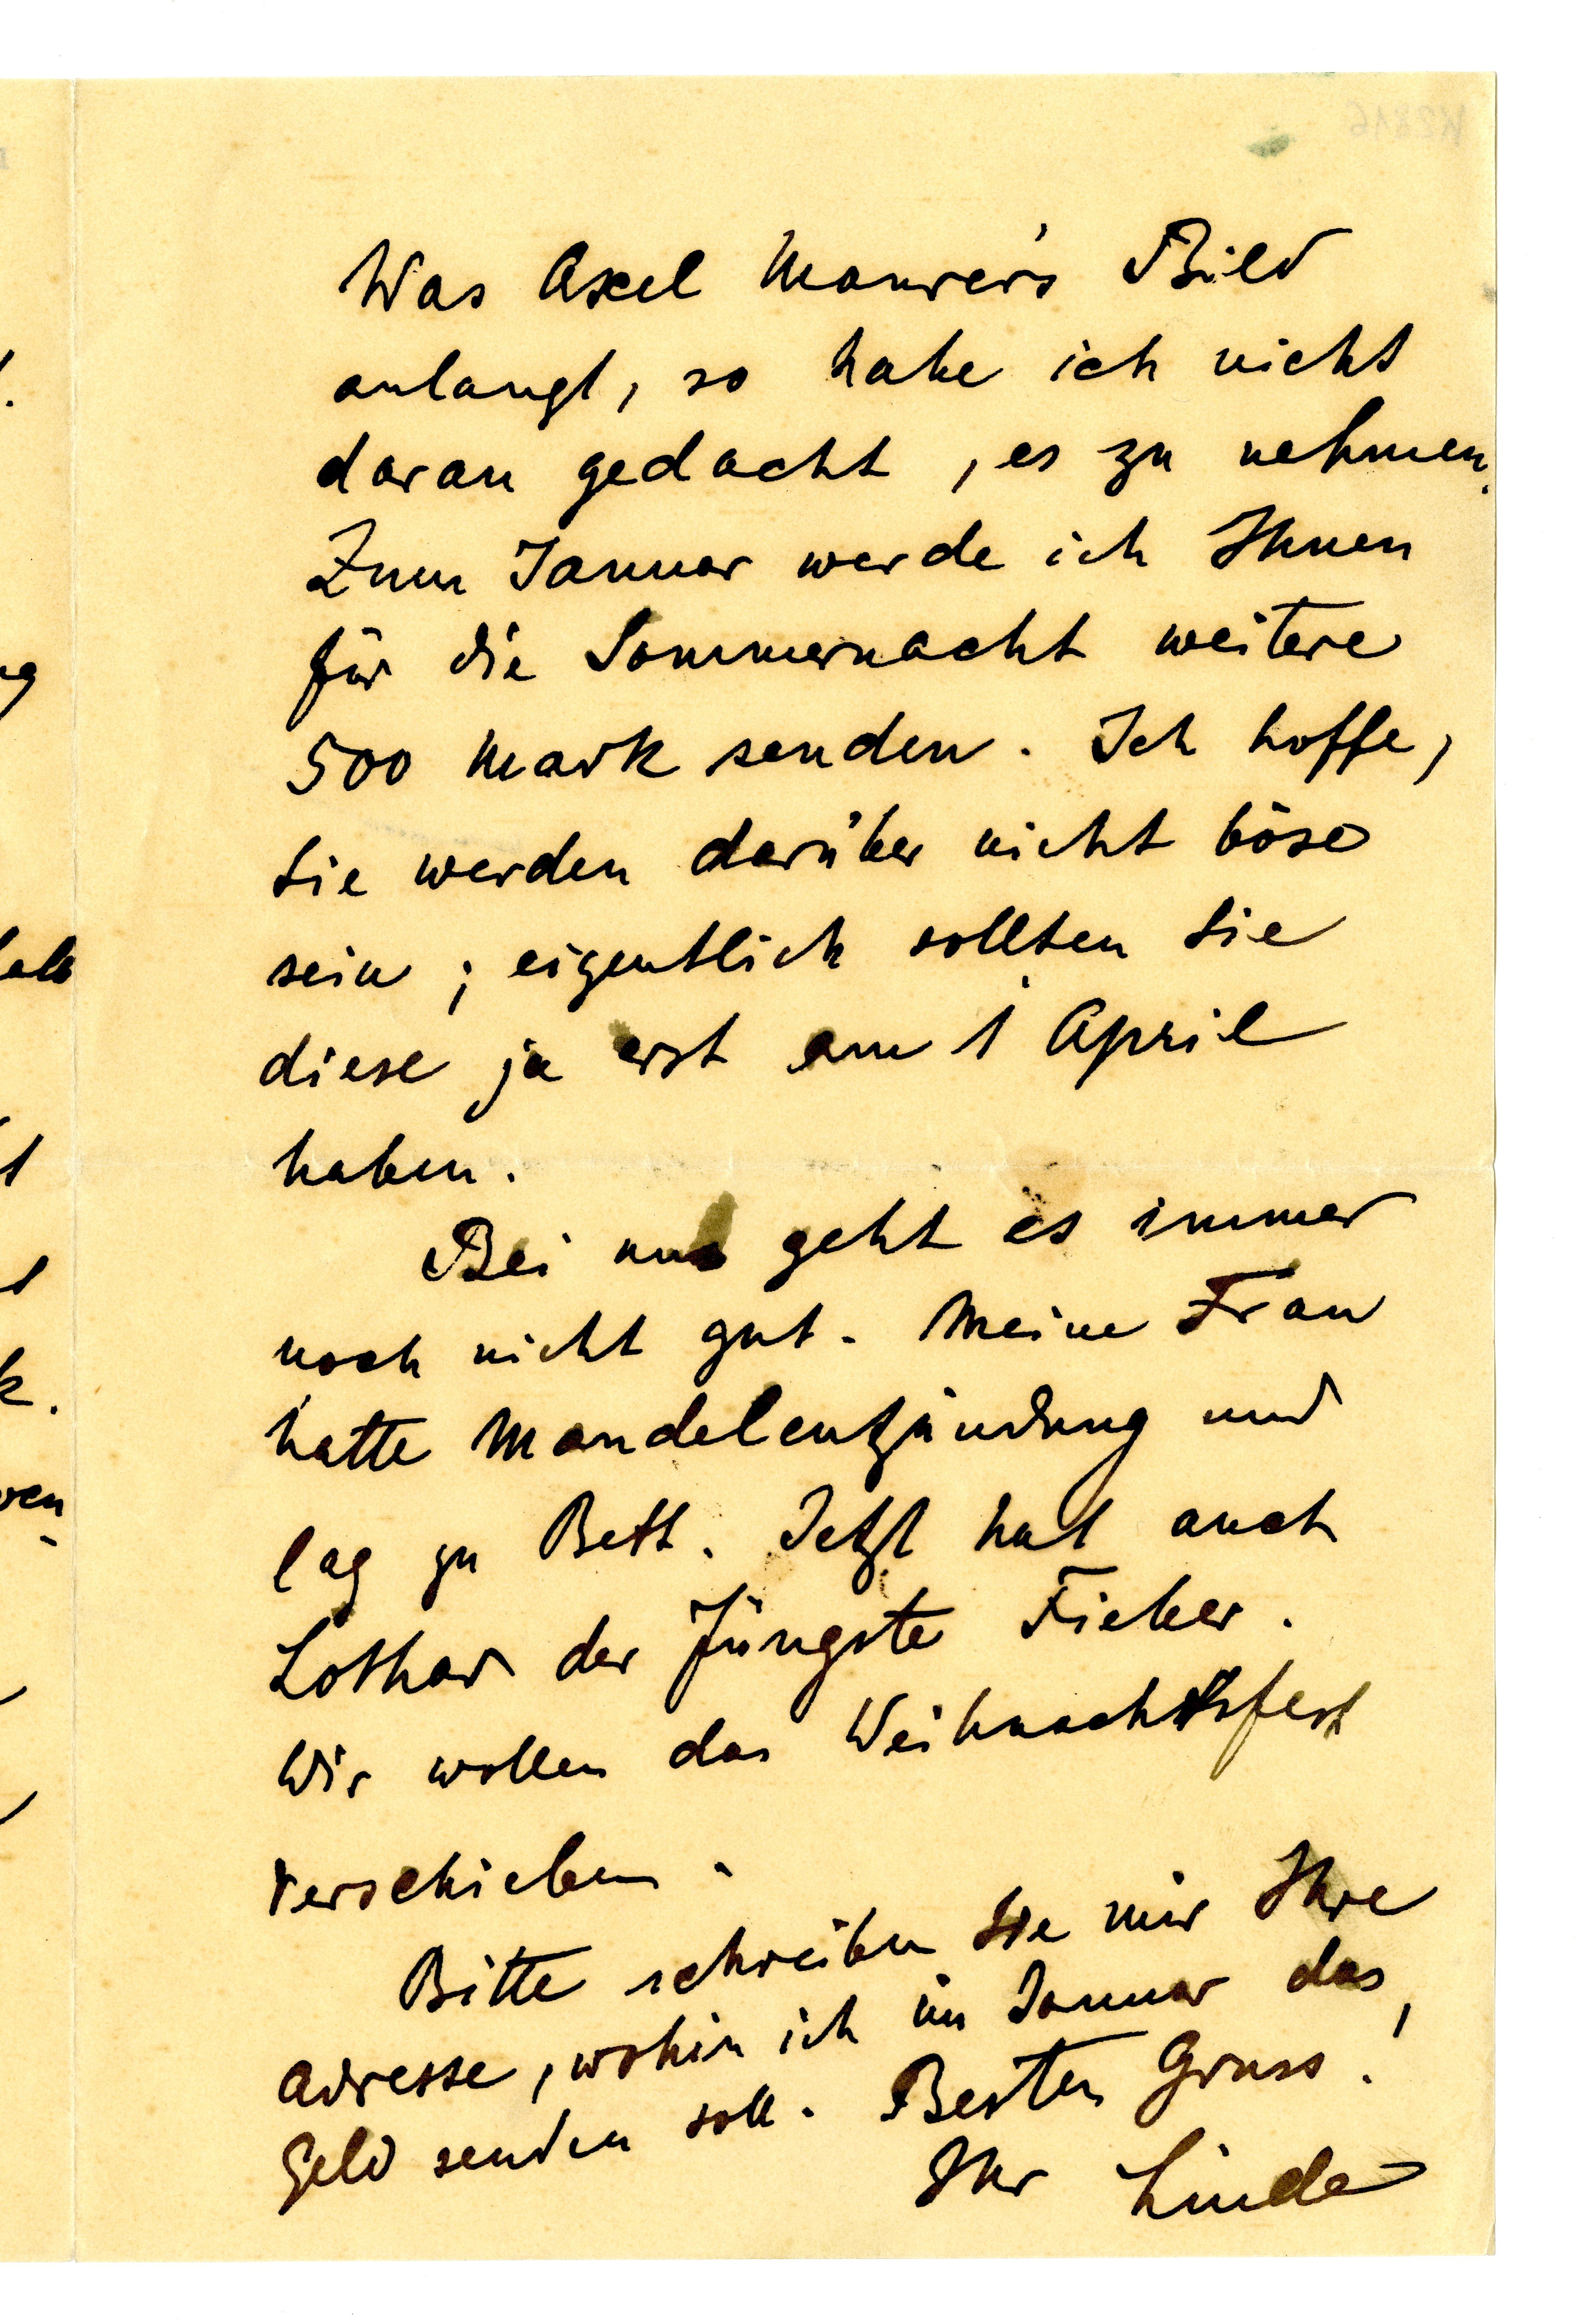 Was Axel Maurer's Bild
anlangt, so habe ich nicht
daran gedacht, es zu nehmen.
Zum Januar werde ich Ihnen
für die Sommernacht weitere
500 Mark senden. Ich hoffe,
Sie werden darüber nicht böse
sein; eigentlich sollten Sie
diese ja erst am 1 April
haben.
Bei uns geht es immer
noch nicht gut. Meine Frau
hatte Mandelentzündung und
lag zu Bett. Jetzt hat auch
Lothar der Jüngste Fieber.
Wir wollen das Weihnachtsfest
verschieben.
Bitte schreiben Sie mir Ihre
Adresse, wohin ich im Januar das
Geld senden soll. Besten Gruss.
Ihr Linde